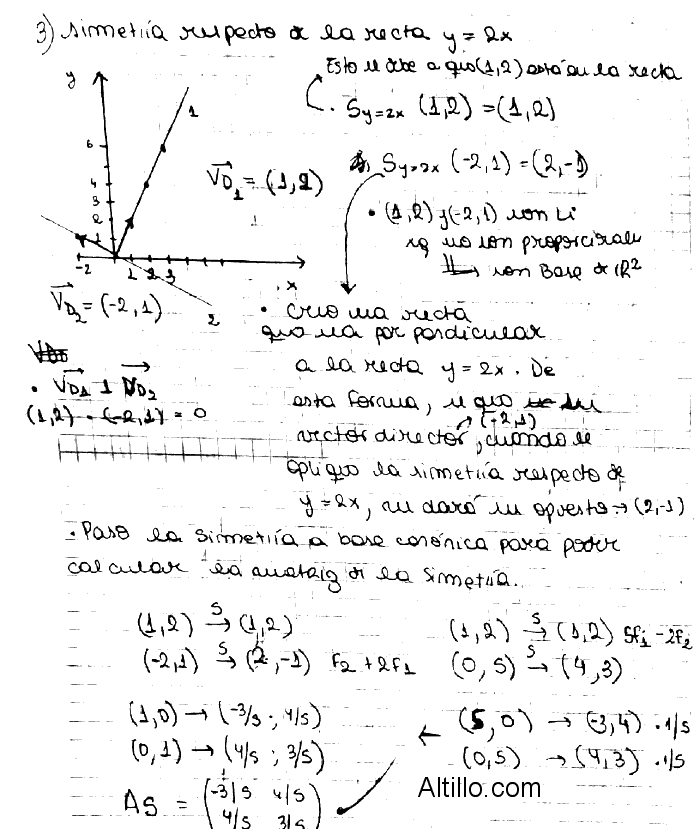 3) simetría respecto de la recta y = 2x
Esto se debe a que (1,2) está en la recta
. Sy=2x (1,2) = (1,2)
y
1
6
4
3
2
1
-2 1 2 3
x
2
VD1 = (1,2)
Sy=2x (-2,1) = (2,-1)
• (1,2) y (-2,1) son Li
ya no son proporcionales
son Base de IR²
VD2 = (-2,1)
• Creo una recta
que sea perpendicular
a la recta y = 2x. De
esta forma, se que su
(-2,1)
vector director, cuando le
aplique la simetría respecto de
y = 2x, me dará su opuesto → (2,-1)
• VD1 ⊥ VD2
(1,2) · (-2,1) = 0
• Paso la simetría a base canónica para poder
calcular la matriz de la simetría.
(1,2) →S (1,2)
(-2,1) →S (2,-1) F2 + 2F1
(1,2) →S (1,2) 5f1 - 2f2
(0,5) →S (4,3)
(1,0) → (-3/5 ; 4/5)
(0,1) → (4/5 ; 3/5)
← (5,0) → (-3,4) .1/5
(0,5) → (4,3) .1/5
AS = (-3/5 4/5
4/5 3/5)
Altillo.com